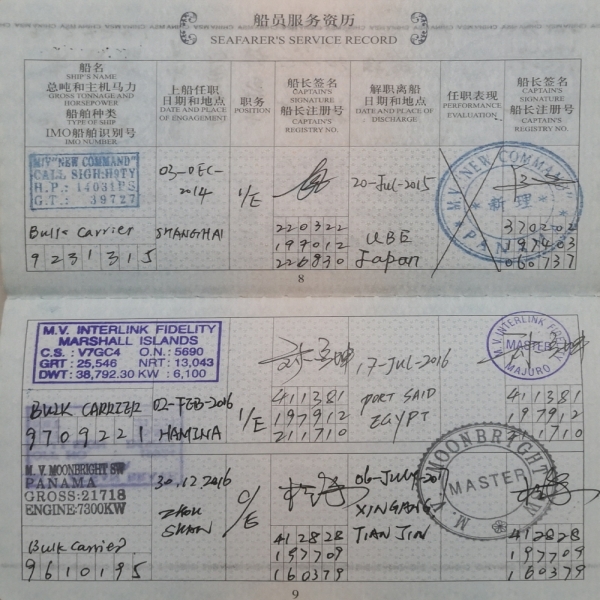 船员服务资历
SEAFARER'S SERVICE RECORD
船名
SHIP'S NAME
总吨和主机马力
GROSS TONNAGE AND
HORSEPOWER
船舶种类
TYPE OF SHIP
IMO船舶识别号
IMO NUMBER
上船任职
日期和地点
DATE AND PLACE
OF ENGAGEMENT
职务
POSITION
船长签名
CAPTAIN'S
SIGNATURE
船长注册号
CAPTAIN'S
REGISTRY NO.
解职离船
日期和地点
DATE AND PLACE OF
DISCHARGE
任职表现
PERFORMANCE
EVALUATION
船长签名
CAPTAIN'S
SIGNATURE
船长注册号
CAPTAIN'S
REGISTRY NO.
M/V "NEW COMMAND"
CALL SIGH:H9TY
H.P.: 14031PS
G.T.: 39727
Bulk Carrier
9231315
03-DEC-
2014
SHANGHAI
1/E
220322
197012
226830
20-Jul-2015
UBE
Japan
M.V. "NEW COMMAND"
新理
PANAMA
370202
197403
060737
8
M.V. INTERLINK FIDELITY
MARSHALL ISLANDS
C.S.: V7GC4 O.N.: 5690
GRT: 25,546 NRT: 13,043
DWT: 38,792.30 KW: 6,100
BULK CARRIER
9709221
02-FEB-2016
HAMINA
1/E
411381
197912
211710
17-Jul-2016
PORT SAID
EGYPT
M.V. INTERLINK FIDELITY
MASTER
MAJURO
411381
197912
211710
M.V. MOONBRIGHT SW
PANAMA
GROSS:21718
ENGINE:7300KW
Bulk Carrier
9610195
30.12.2016
ZHOU
SHAN
C/E
412828
197709
160379
XINGANG
TIANJIN
M.V. MOONBRIGHT SW
MASTER
412828
197709
160379
9